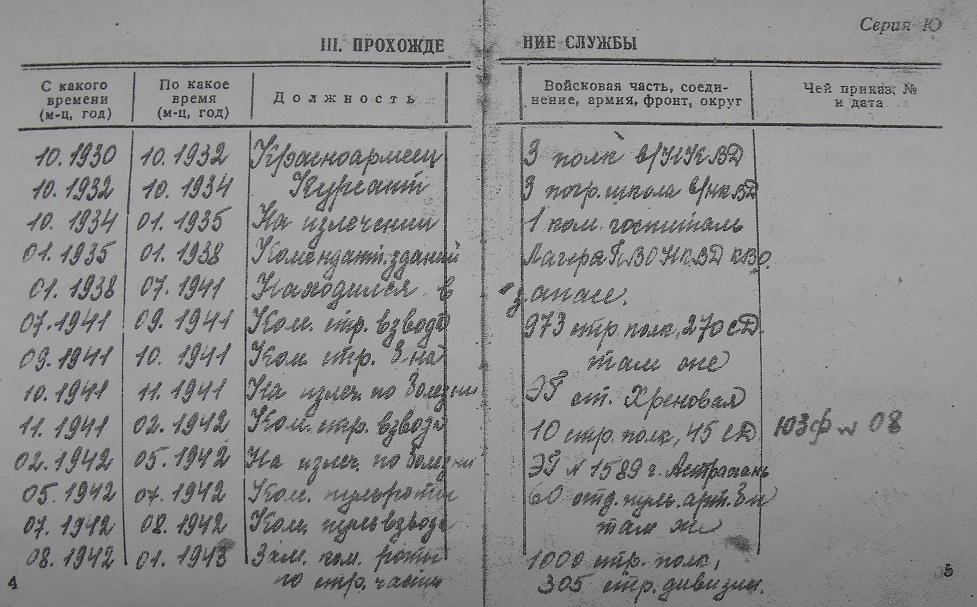 Серия Ю
III. ПРОХОЖДЕНИЕ СЛУЖБЫ
С какого времени (м-ц, год) По какое время (м-ц, год) Должность Войсковая часть, соединение, армия, фронт, округ Чей приказ, № и дата
10.1930 10.1932 Красноармеец 3 полк в/НКВД
10.1932 10.1934 Курсант 3 погр. школа в/НКВД
10.1934 01.1935 На излечении 1 ком. госпиталь
01.1935 01.1938 Комендант зданий Лагеря ПВО НКВД КВО
01.1938 07.1941 Находился в запасе.
07.1941 09.1941 Ком. стр. взвода 973 стр. полк, 270 сд
09.1941 10.1941 Ком. стр. б-на там же
10.1941 11.1941 На излеч. по болезни ЭГ ст. Хреновая
11.1941 02.1942 Ком. стр. взвода 10 стр. полк, 15 сд ЮЗФ № 08
02.1942 05.1942 На излеч. по болезни ЭГ № 1589 г. Астрахань
05.1942 07.1942 Ком. пульроты 60 отд. пуль. арт. бн
07.1942 08.1942 Ком. пульвзвода там же
08.1942 01.1943 Зам. ком. роты 1000 стр. полк,
по стр. части 305 стр. дивизии.
4 5